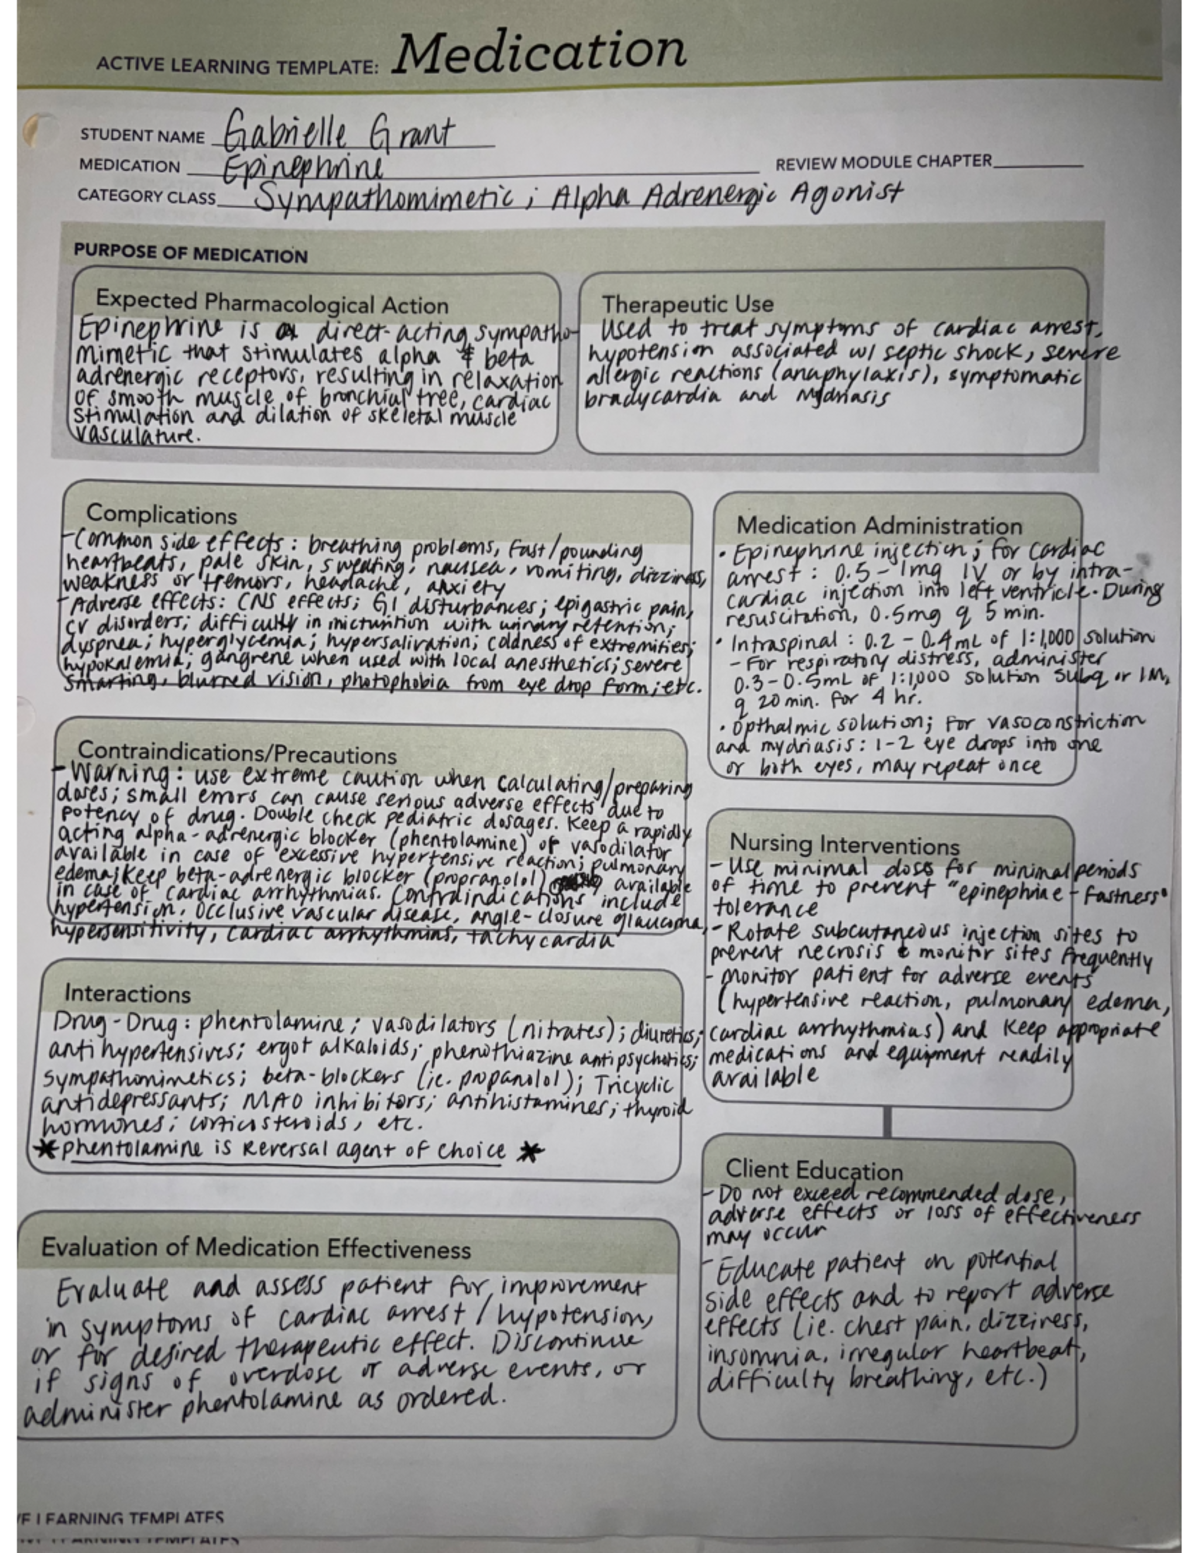 ACTIVE LEARNING TEMPLATE: Medication
STUDENT NAME Gabrielle Grant
MEDICATION Epinephrine
REVIEW MODULE CHAPTER
CATEGORY CLASS Sympathomimetic ; Alpha Adrenergic Agonist
PURPOSE OF MEDICATION
Expected Pharmacological Action
Epinephrine is a direct-acting sympatho-
mimetic that stimulates alpha & beta
adrenergic receptors, resulting in relaxation
of smooth muscle of bronchial tree, cardiac
stimulation and dilation of skeletal muscle
vasculature.
Therapeutic Use
Used to treat symptoms of cardiac arrest,
hypotension associated w/ septic shock, severe
allergic reactions (anaphylaxis), symptomatic
bradycardia and Mydriasis
Complications
-Common side effects : breathing problems, fast/pounding
heartbeats, pale skin, sweating, nausea, vomiting, dizziness,
weakness or tremors, headache, anxiety
-Adverse effects: CNS effects; GI disturbances; epigastric pain,
CV disorders; difficulty in micturition with urinary retention;
dyspnea; hyperglycemia; hypersalivation; coldness of extremities;
hypokalemia; gangrene when used with local anesthetics; severe
smarting, blurred vision, photophobia from eye drop form; etc.
Medication Administration
• Epinephrine injection; for cardiac
arrest : 0.5-1mg IV or by intra-
cardiac injection into left ventricle. During
resuscitation, 0.5mg q 5 min.
• Intraspinal : 0.2 - 0.4mL of 1:1,000 solution
- For respiratory distress, administer
0.3-0.5mL of 1:1,000 solution subq or IM,
q 20 min. for 4 hr.
• Opthalmic solution; for vasoconstriction
and mydriasis : 1-2 eye drops into one
or both eyes, may repeat once
Contraindications/Precautions
- Warning : use extreme caution when calculating/preparing
doses; small errors can cause serious adverse effects due to
potency of drug. Double check pediatric dosages. Keep a rapidly
acting alpha-adrenergic blocker (phentolamine) or vasodilator
available in case of excessive hypertensive reaction; pulmonary
edema; Keep beta-adrenergic blocker (propranolol) available
in case of cardiac arrhythmias. Contraindications include
hypertension, occlusive vascular disease, angle-closure glaucoma,
hypersensitivity, cardiac arrhythmias, tachycardia
Nursing Interventions
- Use minimal doses for minimal periods
of time to prevent "epinephrine-fastness"
tolerance
- Rotate subcutaneous injection sites to
prevent necrosis & monitor sites frequently
- monitor patient for adverse events
(hypertensive reaction, pulmonary edema,
cardiac arrhythmias) and keep appropriate
medications and equipment readily
available
Interactions
Drug-Drug : phentolamine; vasodilators (nitrates); diuretics;
antihypertensives; ergot alkaloids; phenothiazine antipsychotics;
sympathomimetics; beta-blockers (ie. propanolol); Tricyclic
antidepressants; MAO inhibitors; antihistamines; thyroid
hormones; corticosteroids, etc.
* phentolamine is Reversal agent of choice *
Client Education
- Do not exceed recommended dose,
adverse effects or loss of effectiveness
may occur
- Educate patient on potential
side effects and to report adverse
effects (ie. chest pain, dizziness,
insomnia, irregular heartbeat,
difficulty breathing, etc.)
Evaluation of Medication Effectiveness
Evaluate and assess patient for improvement
in symptoms of cardiac arrest / hypotension,
or for desired therapeutic effect. Discontinue
if signs of overdose or adverse events, or
administer phentolamine as ordered.
VE LEARNING TEMPLATES